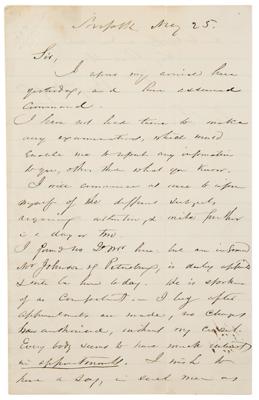 Norfolk May 25.
Sir,
I upon my arrival here
yesterday, and have assumed
Command.
I have not had time to make
any examinations, which would
enable me to report any information
to you, other than what you know.
I will commence at once to inform
myself of the different subjects
requiring attention, & write further
in a day or two.
I find no Dr here but am informed
Mr Johnson of Petersburg, is daily
here to day. He is spoken
of as Competent. I beg after
appointments are made, no change
be authorized, without my consent.
Every body seems to have much interest
in appointments. I wish to
have a say, in such men as